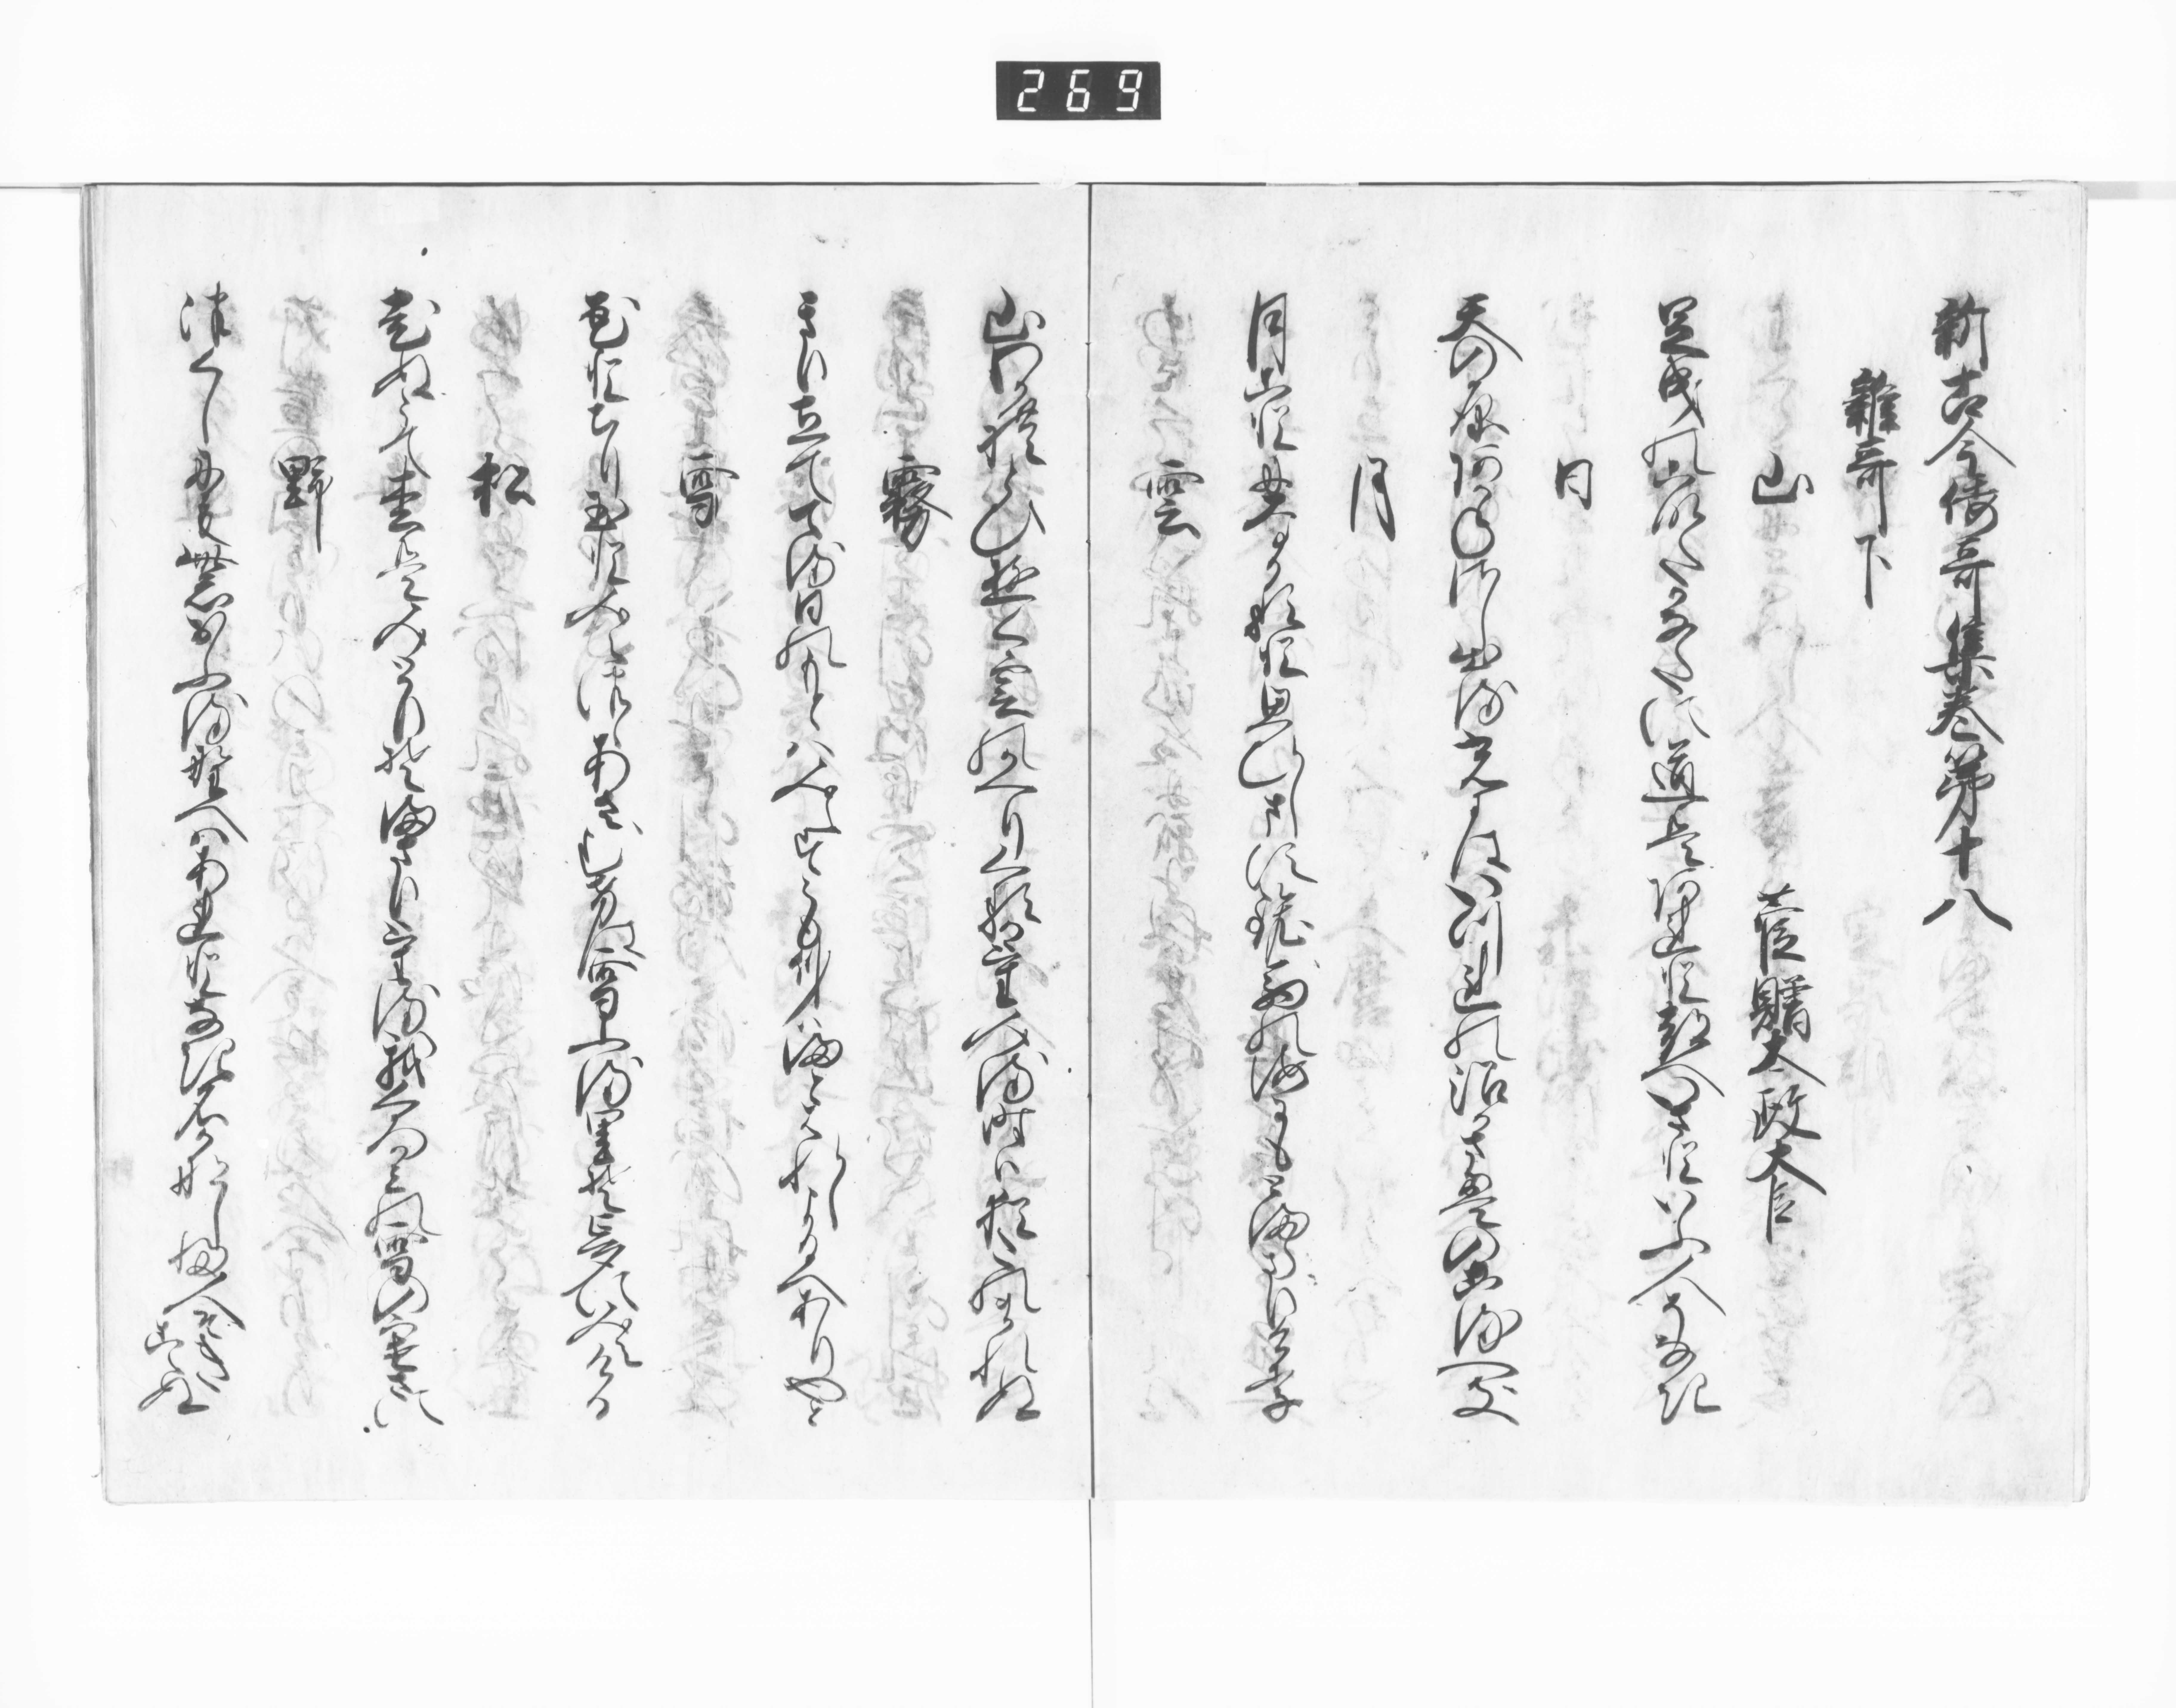 269
新古今倭哥集巻第十八
雑哥下
山　菅贈太政大臣
足曳のこなたかなたに道はあれと都へいさといふ人そなき
日
天の原あかねさし出る光にはいつれの沼かさえのこるへき
月
月ことになかると思ひします鏡西の浦にもとまらさりけり
雲
山わかれとひ行雲のかへりくるかけみる時は猶たのまれぬ
霧
きり立ててる日のもとはみえすとも身はまとはれしよるへありやと
雪
花とちり玉とみえつゝあさむけは雪ふる里そ夢にみえける
松
老ぬとて松はみとりそまさりけるわかくろかみの雪のさむさに
野
つくしにも紫おふる野へはあれとなき名かなしふ人そきこえぬ